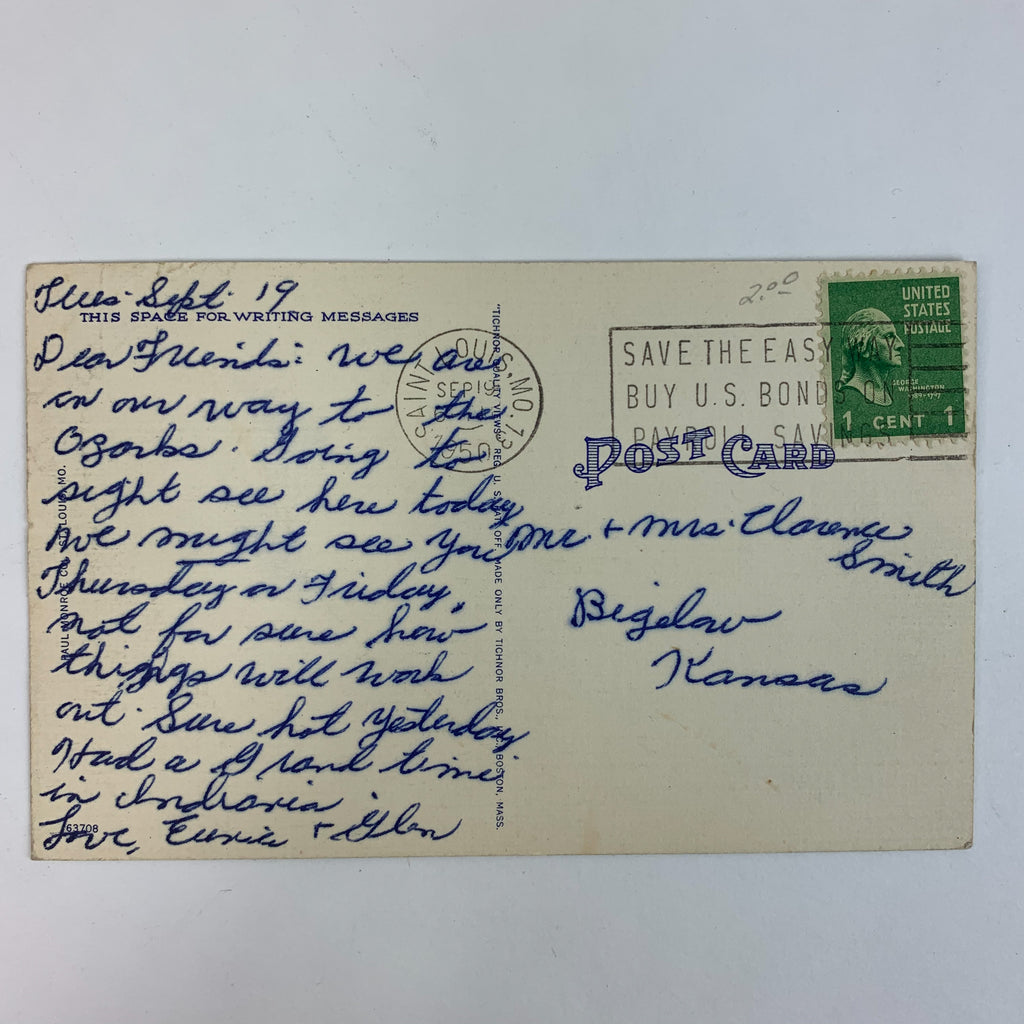 Tues. Sept. 19
THIS SPACE FOR WRITING MESSAGES
Dear Friends: We are
on our way to the
Ozarks. Going to
sight see here today
We might see you
Thursday or Friday,
not for sure how
things will work
out. Sure hot yesterday
Had a Grand time
in Indiana.
Love, & Glen
63708
PAUL MONROE CO., ST. LOUIS, MO.
"TICHNOR QUALITY VIEWS" REG. U. S. PAT. OFF. MADE ONLY BY TICHNOR BROS., BOSTON, MASS.
SAINT LOUIS, MO. 13
SEP 19
1950
2.00
SAVE THE EASY WAY
BUY U.S. BONDS ON
PAYROLL SAVINGS
UNITED
STATES
POSTAGE
GEORGE
WASHINGTON
1789-1797
1 CENT 1
POST CARD
Mr. + Mrs. Clarence
Smith
Bigelow
Kansas